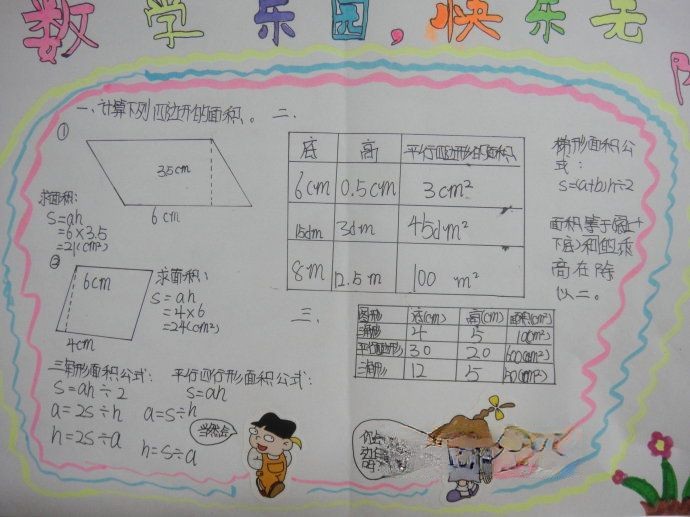 数学乐园,快乐无
一、计算下列四边形的面积。
①
35cm
6cm
求面积:
S=ah
=6×3.5
=21(cm²)
②
6cm
4cm
求面积:
S=ah
=4×6
=24(cm²)
三角形面积公式:
S=ah÷2
a=2s÷h
h=2s÷a
平行四行形面积公式:
S=ah
a=s÷h
h=s÷a
二、
底 高 平行四边形的面积
6cm 0.5cm 3cm²
15dm 3dm 45dm²
8m 12.5m 100 m²
梯形面积公
式:
S=(a+b)h÷2
面积等于(上+
下底)和的乘
高在除
以二。
三、
图形 底(cm) 高(cm) 面积(cm²)
三角形 4 5 10(cm²)
平行四边形 30 20 600(cm²)
三角形 12 5
当然会
你会
吗